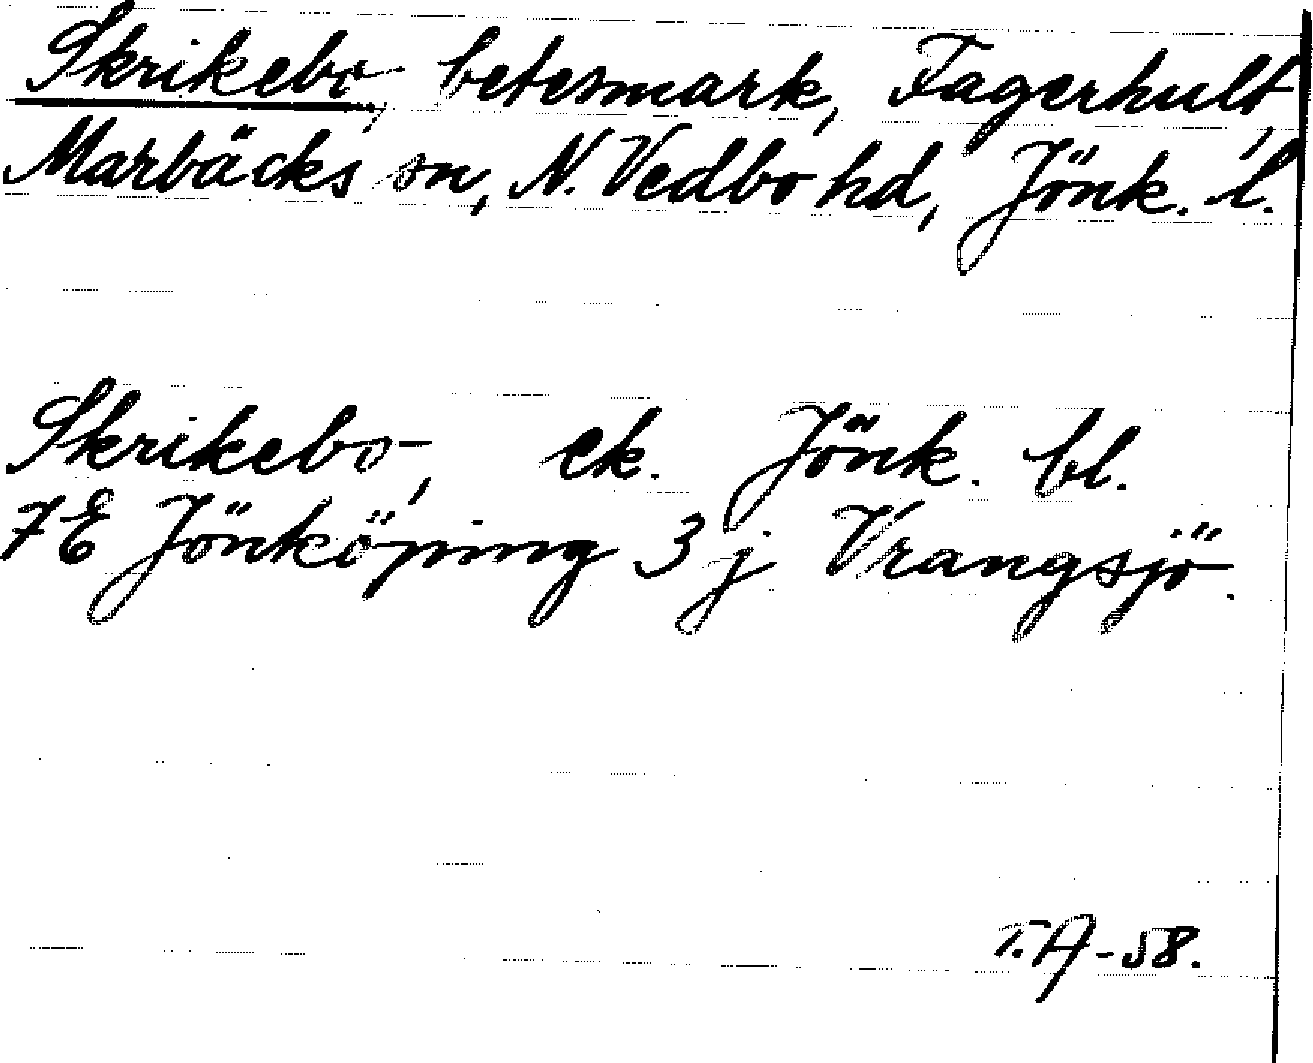 Skrikebo, betesmark, Fagerhult,
Marbäcks sn, N. Vedbo hd, Jönk. l.
Skrikebo, ek. Jönk. bl.
7E Jönköping 3j Vrangsjö.
T.A-58.